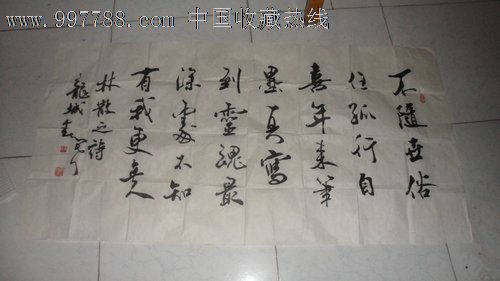 www.997788.com 中国收藏热线
不隨世俗
任孤行自
喜年来筆
墨真寫
到靈魂最
深處不知
有我更無人
林散之詩
龍城